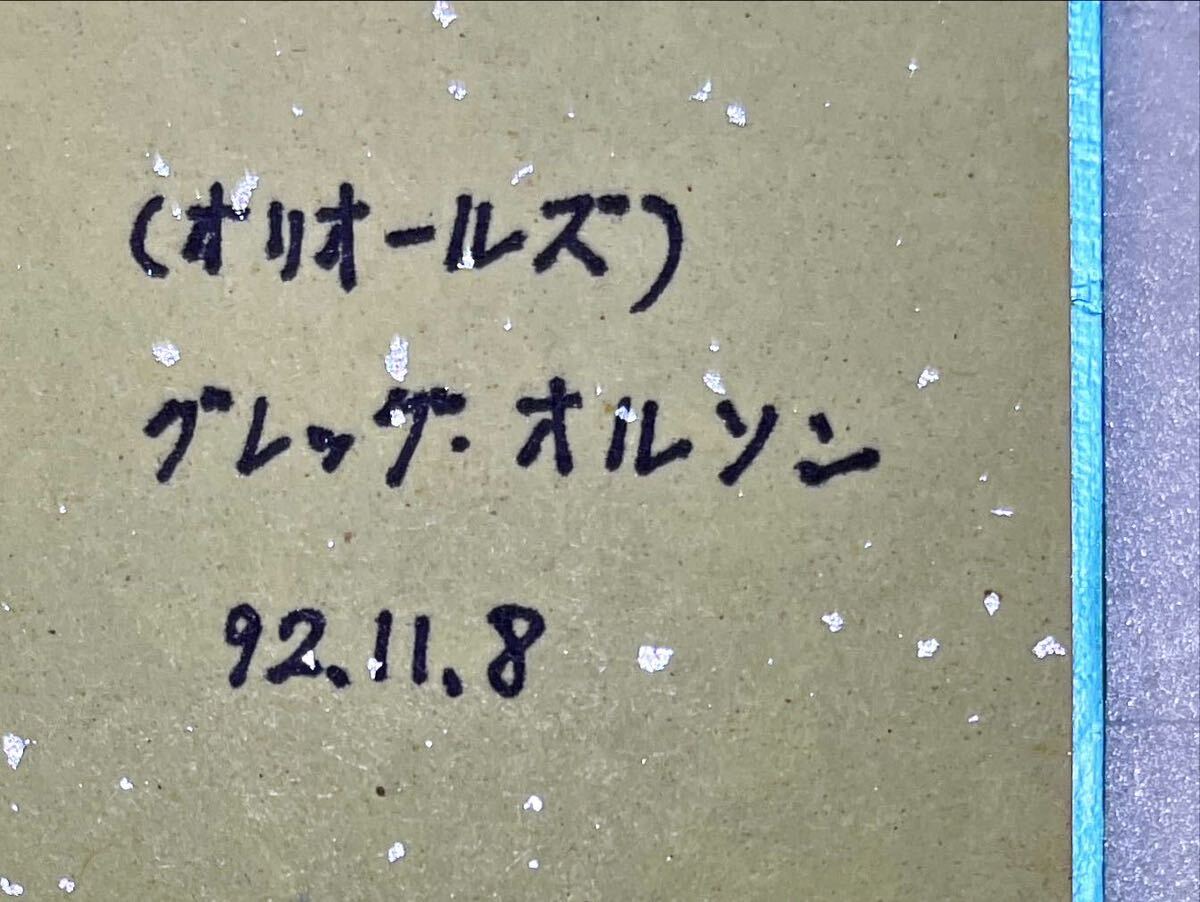 (オリオールズ)
グレッグ・オルソン
92.11.8